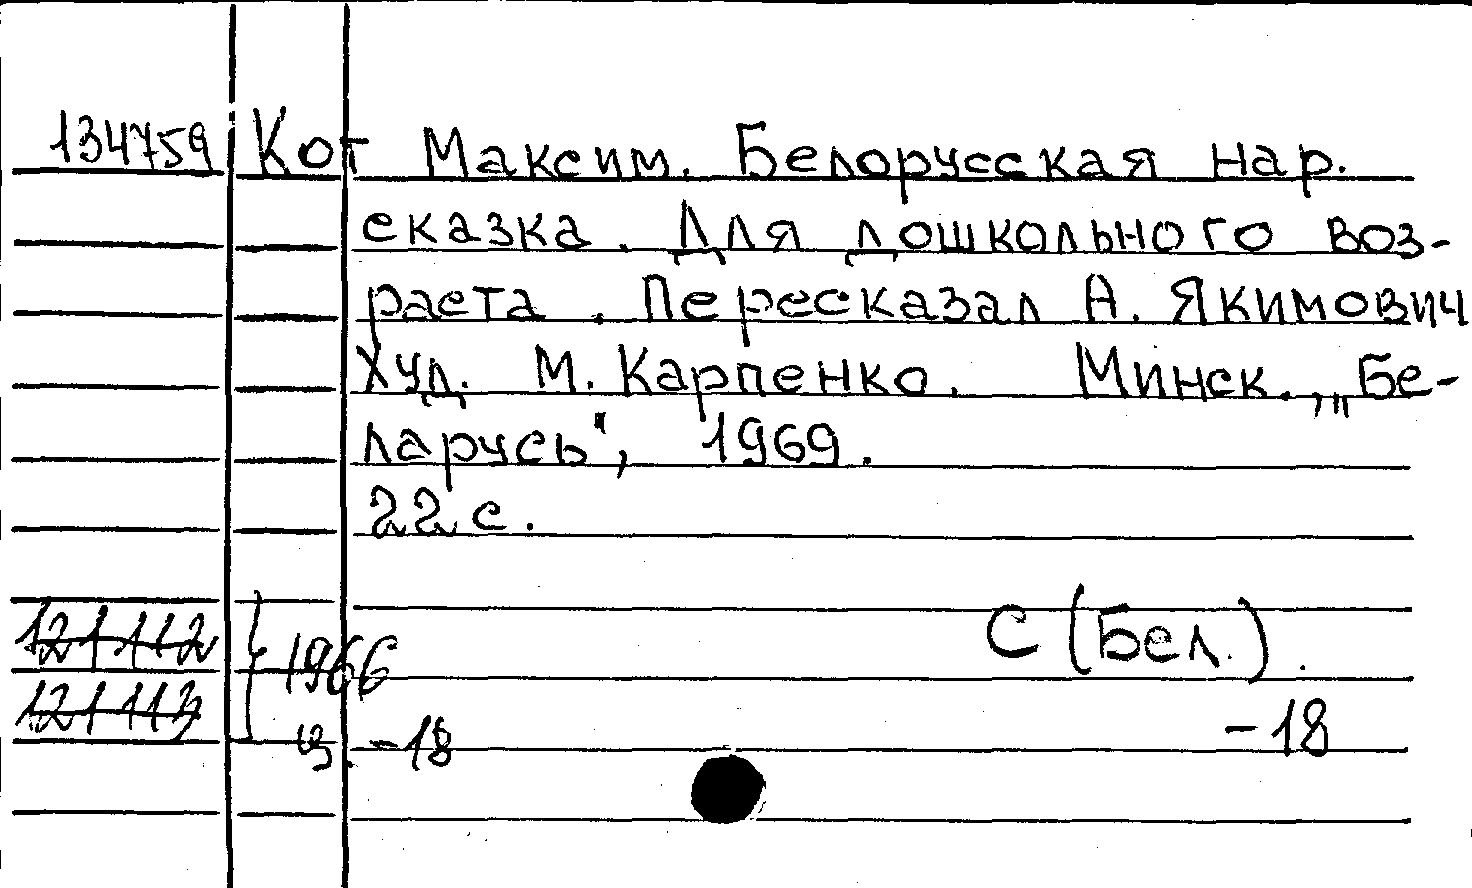 134759 Кот Максим. Белорусская нар.
сказка. Для дошкольного воз-
раста. Пересказал А. Якимович
Худ. М. Карпенко. Минск., „Бе-
ларусь“, 1969.
22 с.
С (Бел.).
121112
121113
1966
ц. -18
-18